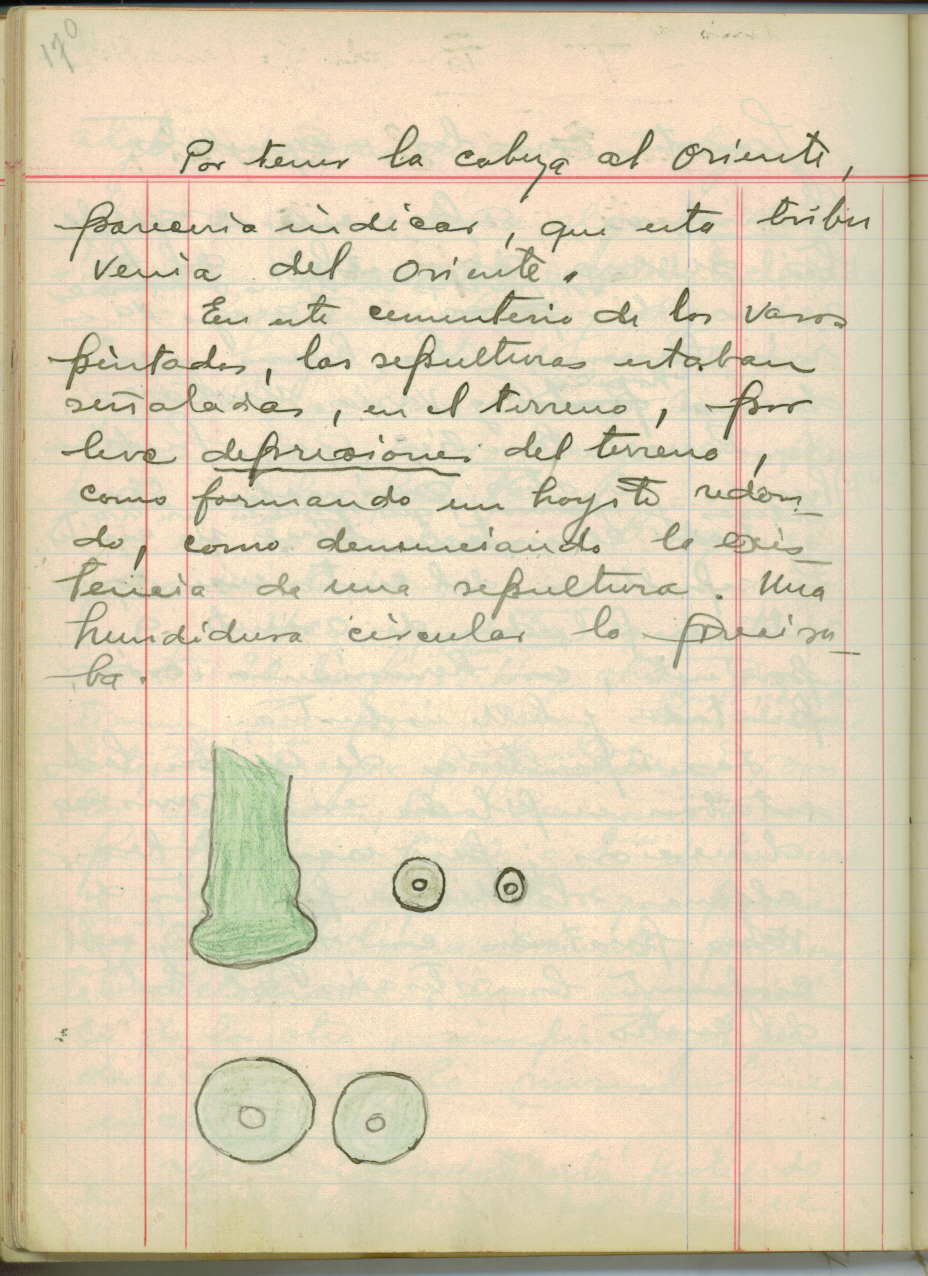 170
Por tener la cabeza al oriente,
pareceria indicar, que esta tribu
venia del oriente.
En este cementerio de los vasos
pintados, las sepulturas estaban
señaladas, en el terreno, por
leve depresiones del terreno,
como formando un hoyito redon_
do, como denunciando la exis
tencia de una sepultura. Una
hundidura circular lo precisa_
ba.